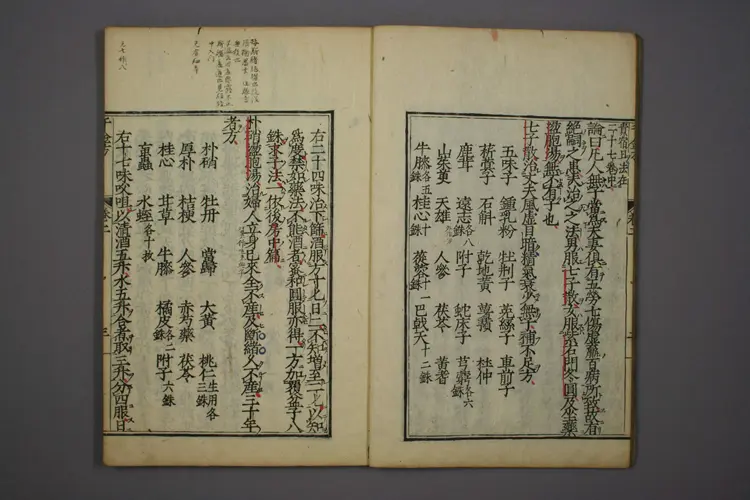 論曰凡人無子當爲夫妻俱有五勞七傷虛羸百病所致故有
絕嗣之患夫治之之法男服七子散女服紫石門冬圓及坐藥
盪胞湯無不有子也
七子散治丈夫風虛目暗精氣衰少無子補不足方
五味子 鍾乳粉 牡荊子 菟絲子 車前子
菥蓂子 石斛 乾地黃 薯蕷 杜仲
鹿茸 遠志各八銖 附子 蛇床子 芎藭各六銖
山茱萸 天雄 人參 茯苓 黃耆
牛膝各五銖 桂心十銖 蓯蓉十一銖 巴戟天十二銖
右二十四味治下篩酒服方寸匕日二不知增至二匕以知
爲度禁如藥法不能酒者蜜和圓服亦得一方加覆盆子八
銖求子法一依後房中篇
朴硝盪胞湯治婦人立身已來全不產及斷緒久不產三十年
者方
朴硝 牡丹 當歸 大黃 桃仁生用各三銖
厚朴 桔梗 人參 赤芍藥 茯苓
桂心 甘草 牛膝 橘皮各二銖 附子六銖
䖟蟲 水蛭各十枚
右十七味㕮咀以清酒五升水五升合煮取三升分四服日